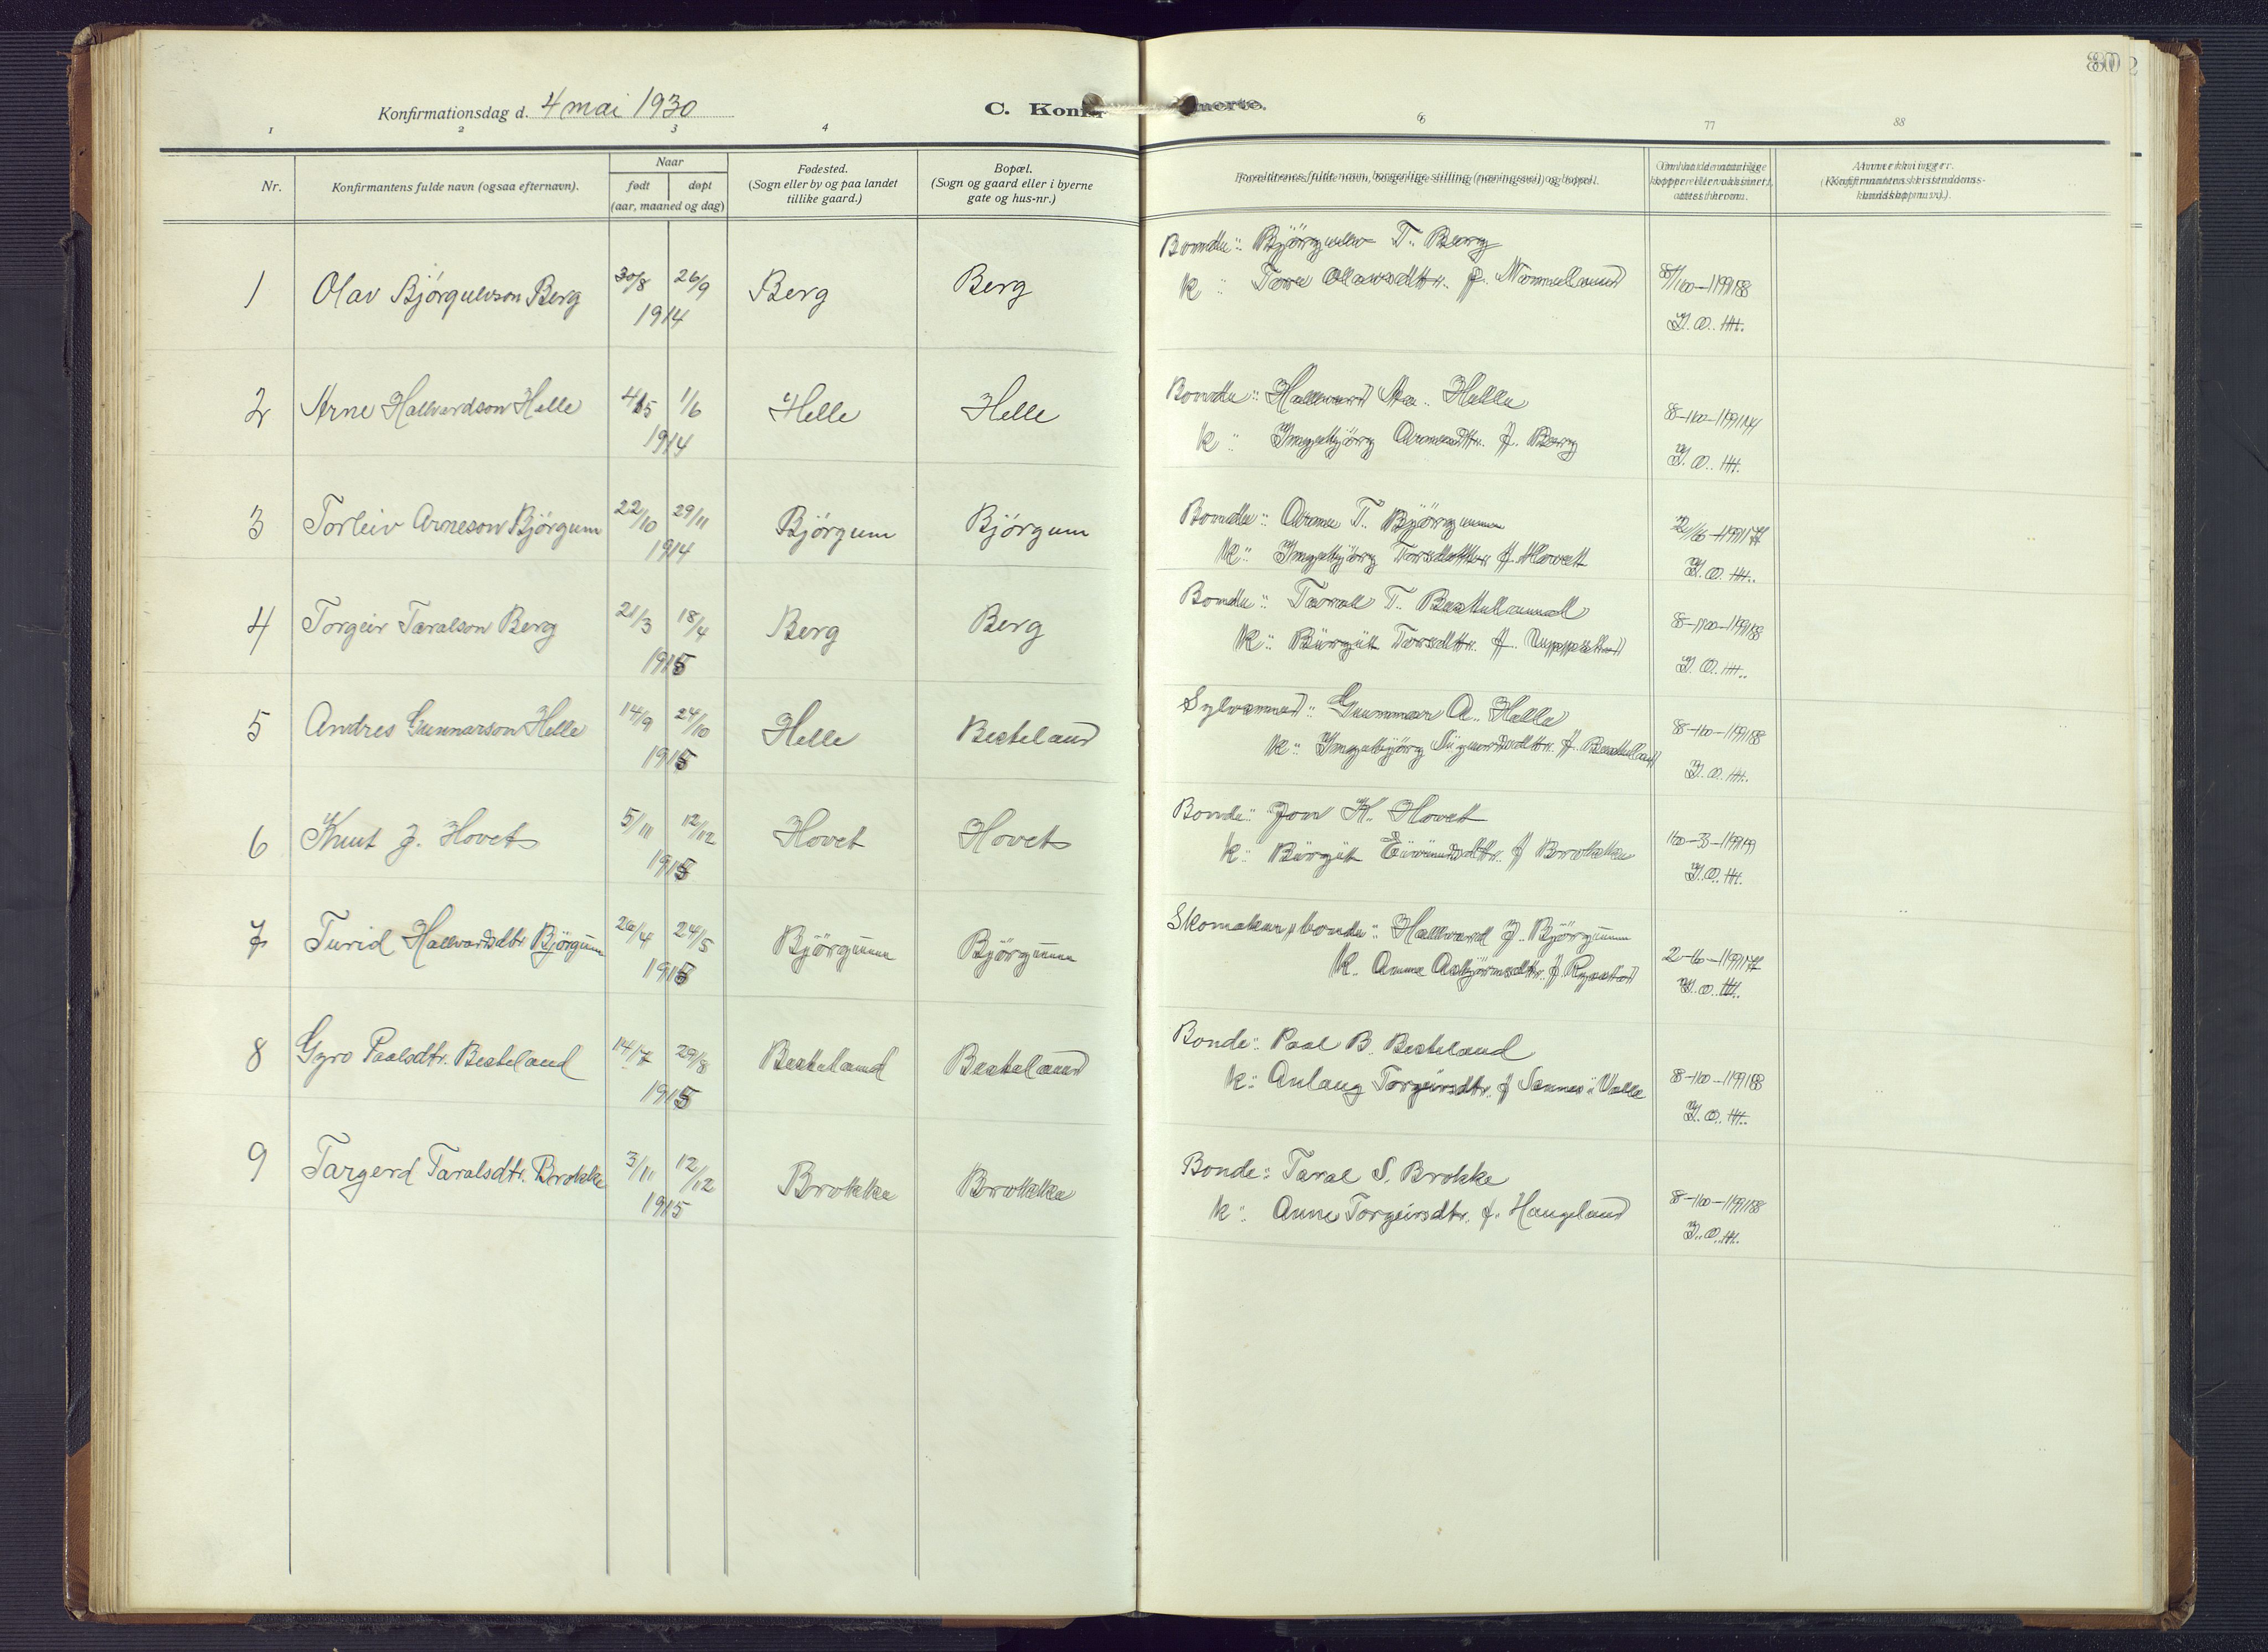 Konfirmationsdag d. 4 mai 1930
C. Konfir merte.
1 2 3 4 6 7 8
Nr. Konfirmantens fulde navn (ogsaa efternavn). Naar født døpt (aar, maaned og dag) Fødested. (Sogn eller by og paa landet tillike gaard.) Bopæl. (Sogn og gaard eller i byerne gate og hus-nr.) Forældrenes fulde navn, borgerlige stilling (næringsvei) og bopæl. Om hatt de naturlige kopper eller vaksinert, attest herom. Anmerkninger. (Konfirmantens kristendoms-kundskap m.v.).
1 Olav Björgulvson Berg 30/8 26/9 1914 Berg Berg Bonde: Björgulv T. Berg
k: Tore Olavsdtr. f.
J. O. H.
2 Arne Hallvardson Helle 1/6 1914 Helle Helle Bonde: Hallvard Helle
k: Ingebjörg Arnesdtr. f. Berg
J. O. H.
3 Torleiv Arneson Björgum 22/10 29/11 1914 Björgum Björgum Bonde: Arne T. Björgum
k: Ingebjörg Torsdotter f. Hovet
J. O. H.
4 Torgeir Taralson Berg 21/3 18/4 1915 Berg Berg Bonde: Taral T. Besteland
k: Birgit Torsdtr. f. Uppstad
J. O. H.
5 Andres Gunnarson Helle 14/9 24/10 1915 Helle Besteland Sylvsmed: Gunnar A. Helle
k: Ingebjörg Sigurdsdtr. f. Besteland
J. O. H.
6 Knut J. Hovet 5/11 12/12 1915 Hovet Hovet Bonde: Jon K. Hovet
k: Birgit Eivindsdtr. f Brokke
J. O. H.
7 Turid Hallvardsdtr Björgum 26/4 24/5 1915 Björgum Björgum Skomaker, bonde: Hallvard J. Björgum
k. Anne Asbjörnsdtr. f. Rysstad
J. O. H.
8 Gyro Paalsdtr. Besteland 14/7 29/8 1915 Besteland Besteland Bonde: Paal B. Besteland
k: Aulaug Torgeirsdtr. f Sannes i Valle
J. O. H.
9 Targerd Taralsdtr. Brokke 3/11 12/12 1915 Brokke Brokke Bonde: Taral S. Brokke
k: Anne Torgeirsdtr. f. Haugeland
J. O. H.